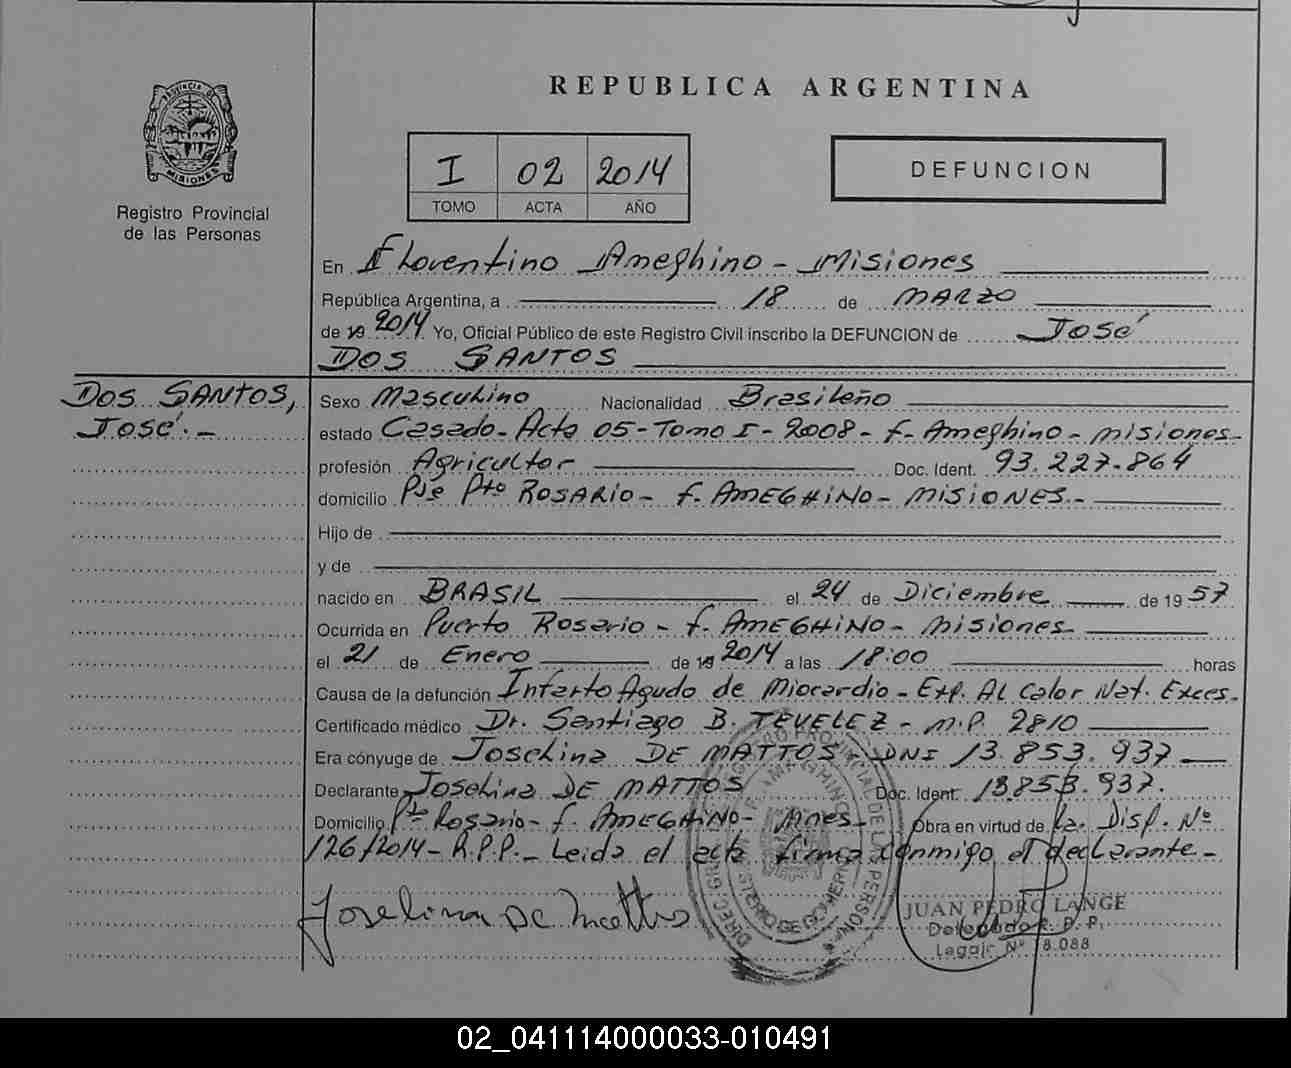 REPUBLICA ARGENTINA
I 02 2014
TOMO ACTA AÑO
DEFUNCION
PROVINCIA DE
MISIONES
Registro Provincial
de las Personas
En Florentino Ameghino - Misiones
República Argentina, a 18 de MARZO
de 19 2014 Yo, Oficial Público de este Registro Civil inscribo la DEFUNCION de José
DOS SANTOS
DOS SANTOS,
José.-
Sexo Masculino Nacionalidad Brasileño
estado Casado - Acta 05 - Tomo I - 2008 - f. Ameghino - misiones-
profesión Agricultor Doc. Ident. 93.227.864
domicilio Pje Pto ROSARIO - f. AMEGHINO - MISIONES.-
Hijo de
y de
nacido en BRASIL el 24 de Diciembre de 19 57
Ocurrida en Puerto Rosario - f. AMEGHINO - Misiones
el 21 de Enero de 19 2014 a las 18:00 horas
Causa de la defunción Infarto Agudo de Miocardio - Exp. Al Calor Nat. Exces.
Certificado médico Dr. Santiago B. TEVELEZ - M.P. 2810
Era cónyuge de Joselina DE MATTOS - DNI 13.853.937
Declarante Joselina DE MATTOS Doc. Ident. 13.853.937.
Domicilio Pto Rosario - f. AMEGHINO - Mnes - Obra en virtud de la Disp. Nº
126/2014 - R.P.P. - Leida el acta firma conmigo el declarante -
Joselina De Mattos
JUAN PEDRO LANGE
Delegado R. P. P.
Legajo Nº 8.088
02_041114000033-010491